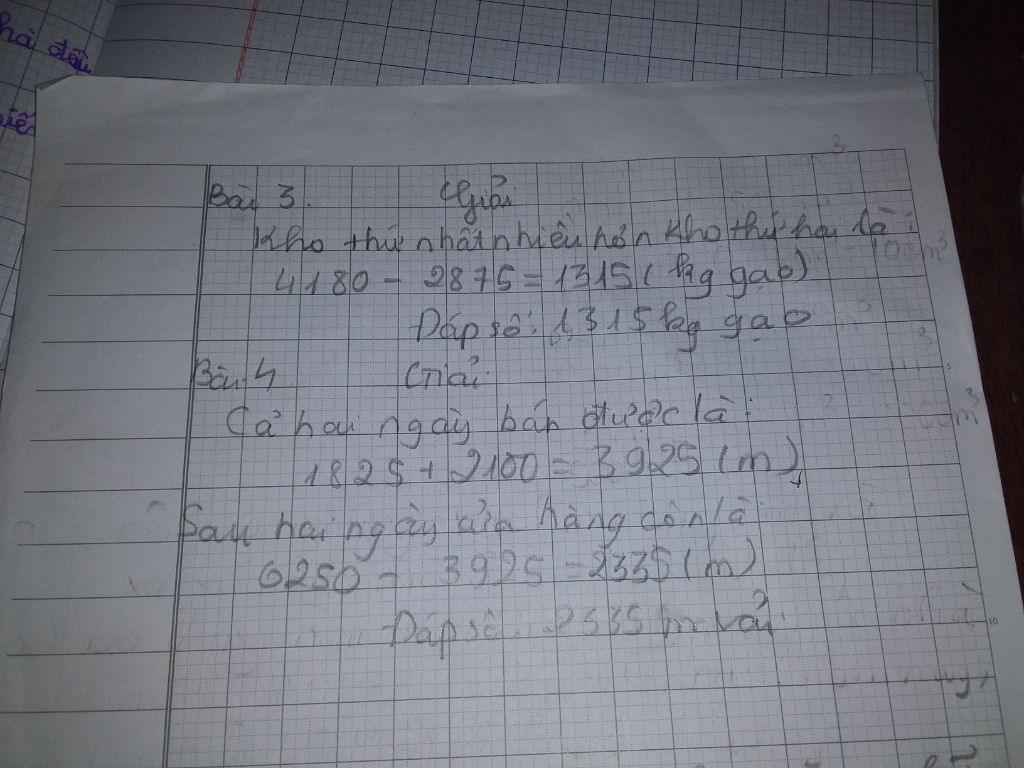 hà đầu
Bài 3. Giải
Kho thứ nhất nhiều hơn kho thứ hai là:
4180 - 2875 = 1315 ( kg gạo)
Đáp số: 1315 kg gạo
Bài 4. Giải
Cả hai ngày bán được là:
1825 + 2100 = 3925 (m)
Sau hai ngày cửa hàng còn là
6250 - 3925 = 2335 (m)
Đáp số: 2335 m vải